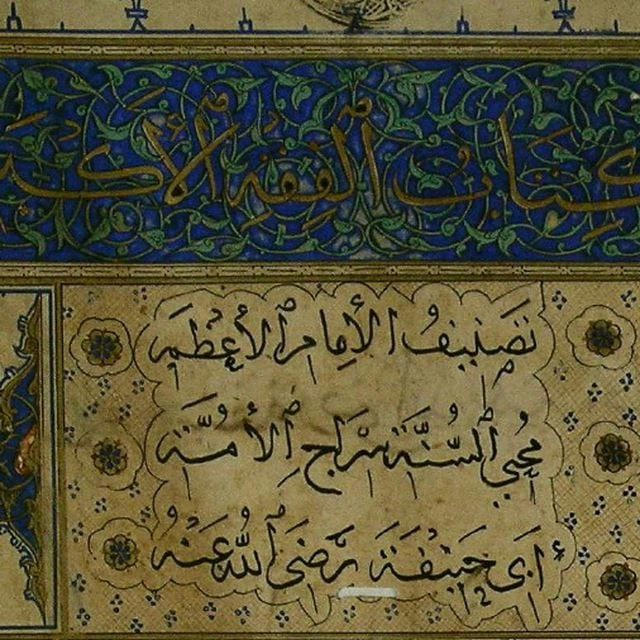 كتاب الفقه الأكبر
تصنيف الإمام الأعظم
محيي السنة سراج الأمة
أبي حنيفة رضي الله عنه